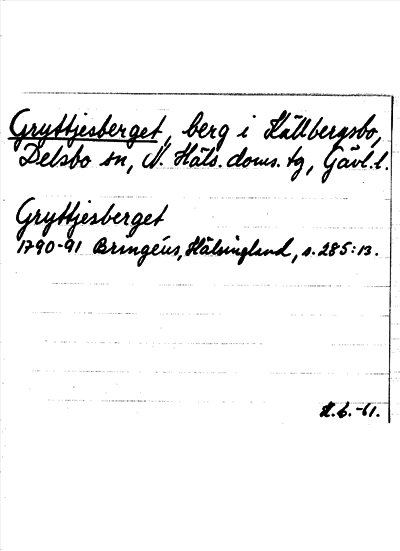 Gryttjesberget, berg i Källbergsbo,
Delsbo sn, N. Häls. doms. tg, Gävl. l.
Gryttjesberget
1790-91 Bringéus, Hälsingland, s. 285:13.
H.L.-61.